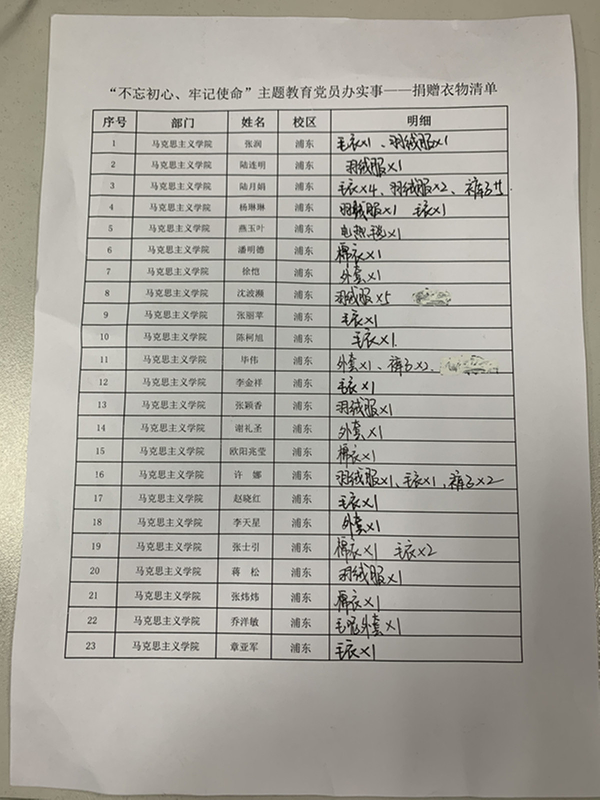 “不忘初心、牢记使命”主题教育党员办实事——捐赠衣物清单
序号 部门 姓名 校区 明细
1 马克思主义学院 张润 浦东 毛衣×1、羽绒服×1
2 马克思主义学院 陆连明 浦东 羽绒服×1
3 马克思主义学院 陆月娟 浦东 毛衣×4、羽绒服×2、裤子
4 马克思主义学院 杨琳琳 浦东 羽绒服×1 毛衣×1
5 马克思主义学院 燕玉叶 浦东 电热毯×1
6 马克思主义学院 潘明德 浦东 棉衣×1
7 马克思主义学院 徐恺 浦东 外套×1
8 马克思主义学院 沈波濒 浦东 羽绒服×5
9 马克思主义学院 张丽苹 浦东 毛衣×1
10 马克思主义学院 陈柯旭 浦东 毛衣×1.
11 马克思主义学院 毕伟 浦东 外套×1、裤子×2、
12 马克思主义学院 李金祥 浦东 毛衣×1
13 马克思主义学院 张颖香 浦东 羽绒服×1
14 马克思主义学院 谢礼圣 浦东 外套×1
15 马克思主义学院 欧阳兆莹 浦东 棉衣×1
16 马克思主义学院 许 娜 浦东 羽绒服×1、毛衣×1、裤子×2
17 马克思主义学院 赵晓红 浦东 毛衣×1
18 马克思主义学院 李天星 浦东 外套×1
19 马克思主义学院 张士引 浦东 棉衣×1 毛衣×2
20 马克思主义学院 蒋 松 浦东 羽绒服×1
21 马克思主义学院 张炜炜 浦东 棉衣×1
22 马克思主义学院 乔洋敏 浦东 毛呢外套×1
23 马克思主义学院 章亚军 浦东 毛衣×1